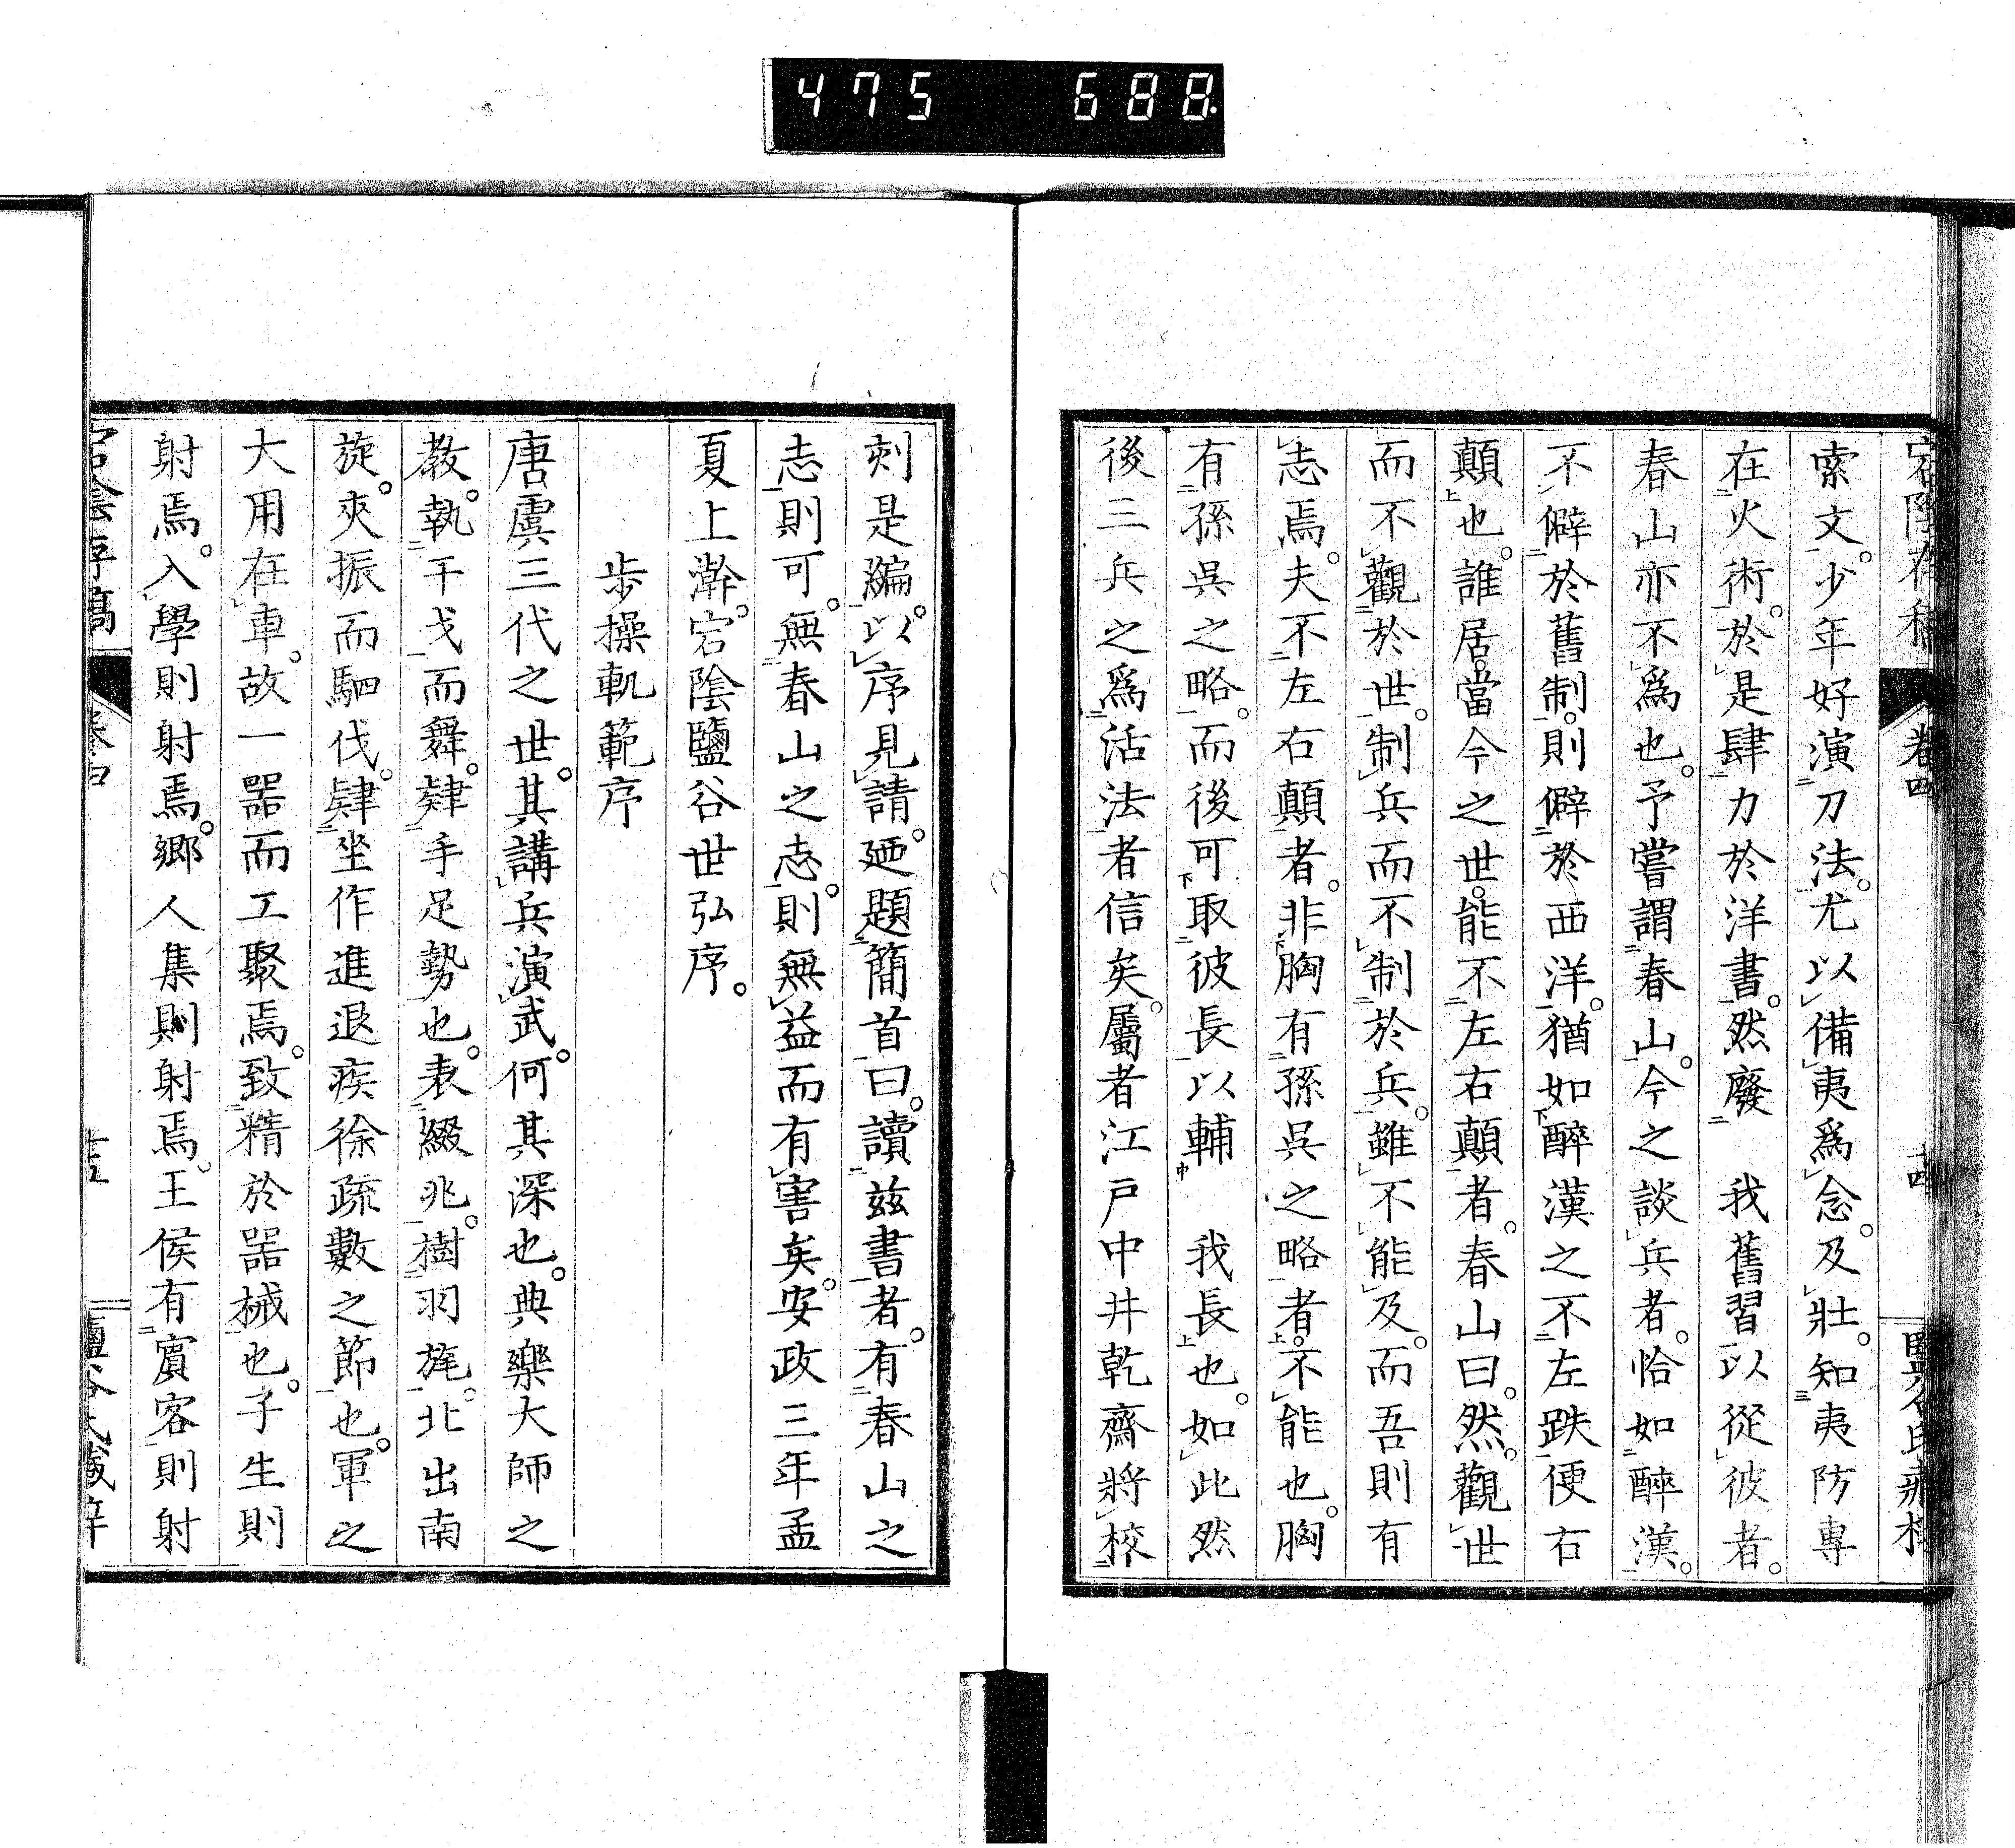 475 688
卷四
十四
索文。少年好演刀法。尤以備夷爲念。及壯。知夷防專
在火術。於是肆力於洋書。然廢 我舊習以從彼者。
春山亦不爲也。予嘗謂春山。今之談兵者。恰如醉漢。
不僻於舊制。則僻於西洋。猶如醉漢之不左跌便右
顛也。誰居當今之世。能不左右顛者。春山曰。然。觀世
而不觀於世。制兵而不制於兵。雖不能及。而吾則有
志焉。夫不左右顛者。非胸有孫呉之略者。不能也。胸
有孫呉之略。而後可取彼長以輔 我長也。如此然
後三兵之爲活法者信矣。屬者江戸中井乾齋將校
刻是編。以序見請。廼題簡首曰。讀茲書者。有春山之
志則可。無春山之志。則無益而有害矣。安政三年孟
夏上澣。宕陰鹽谷世弘序。
歩操軌範序
唐虞三代之世。其講兵演武。何其深也。典樂大師之
敎。執干戈而舞。肄手足勢也。表綴兆。樹羽旄。北出南
旋。夾振而駟伐。肄坐作進退疾徐疏數之節也。軍之
大用在車。故一器而工聚焉。致精於器械也。子生則
射焉。入學則射焉。鄉人集則射焉。王侯有賓客則射
宕陰存稿
卷四
十五